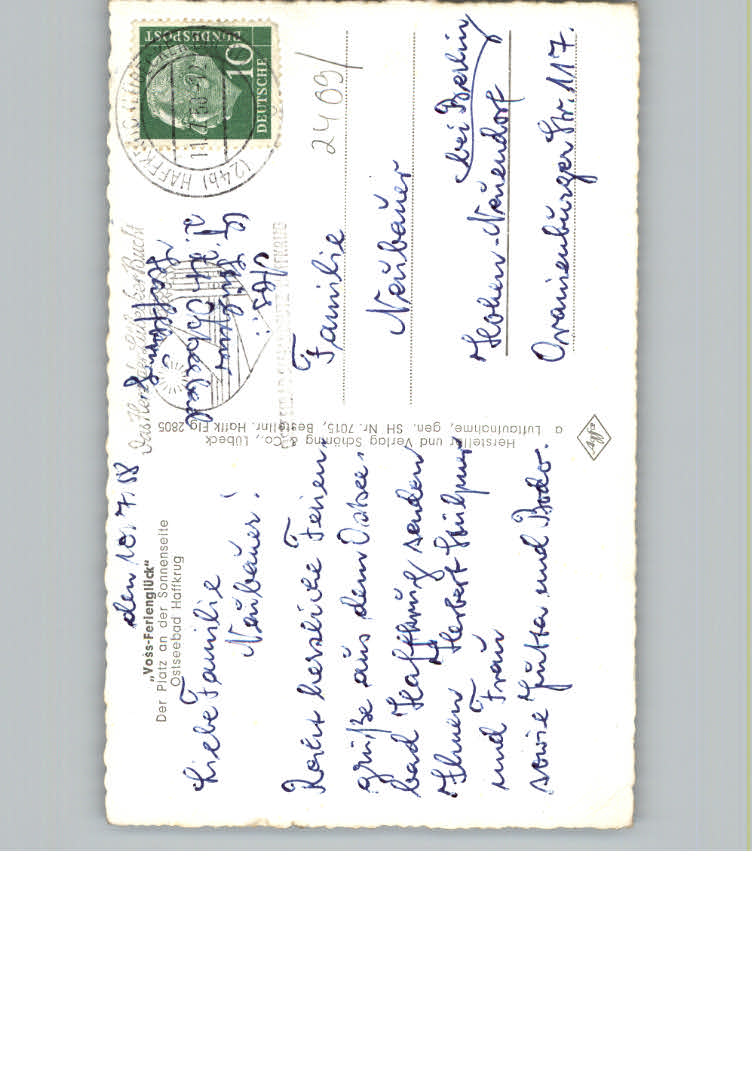 den 10.7.58
„Voss-Ferienglück“
Der Platz an der Sonnenseite
Ostseebad Haffkrug
Liebe Familie
Neubauer!
Recht herzliche Ferien-
grüße aus dem Ostsee-
bad Haffkrug senden
Ihnen Herbert Stülpner
und Frau
sowie Jutta und Bodo.
Hersteller und Verlag Schöning & Co., Lübeck
a Luftaufnahme, gen. SH Nr. 7015, Bestellnr. Haffk Flg 2805
Agfa
DEUTSCHE
BUNDESPOST
10
(24b) HAFFKRUG
Das Herz der Lübecker Bucht
2409/
Familie
Neubauer
Hohen-Neuendorf
bei Berlin
Oranienburger Str. 117.